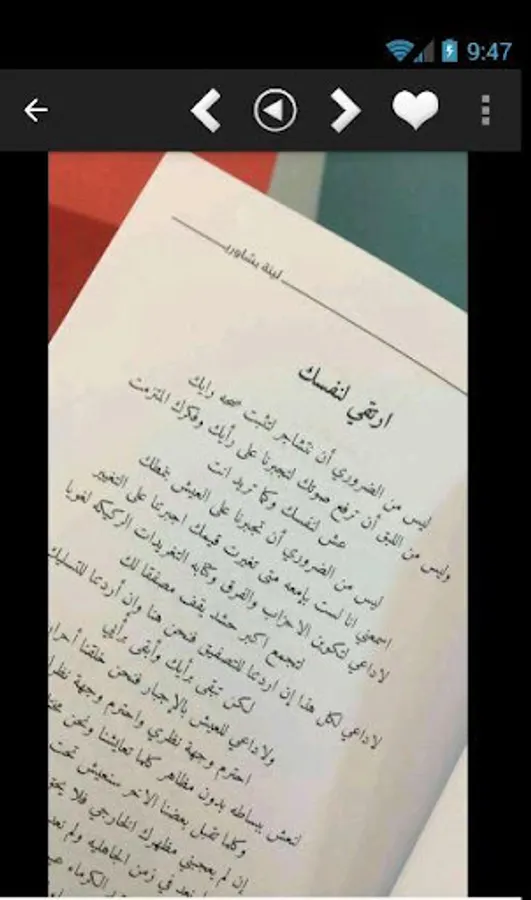 9:47
لينة بشاوري
ارتقي لنفسك
ليس من الضروري أن نتشاجر لنثبت صحه رايك
وليس من اللبق أن ترفع صوتك لتجبرنا على رأيك وفكرك المتزمت
عش لنفسك وكما تريد انت
ليس من الضروري أن تجبرنا على العيش بمطك
اسمعني انا لست بإمعه متى تغيرت قيمك اجبرتنا على التغيير
لاداعي لتكون الاحزاب والفرق وكتابه التغريدات الركيكه لغويا
لتجمع اكبر حشد يقف مصفقا لك
لاداعي لكل هذا إن اردعنا للتصفيق فنحن هنا وإن أردعا للتسليك
لكن تبقى برأيك وأبقى برأيي
ولاداعي للعيش بالإجبار فنحن خلقنا أحرار
احترم وجهة نظري واحترم وجهة
لنعش ببساطه بدون مظاهر كلما تعايشنا ونحن
وكلما تقبل بعضنا الآخر سنعيش تحت
إن لم يعجبني مظهرك الخارجي فلا
نعد في زمن الجاهليه ولم نعد
الكرماء